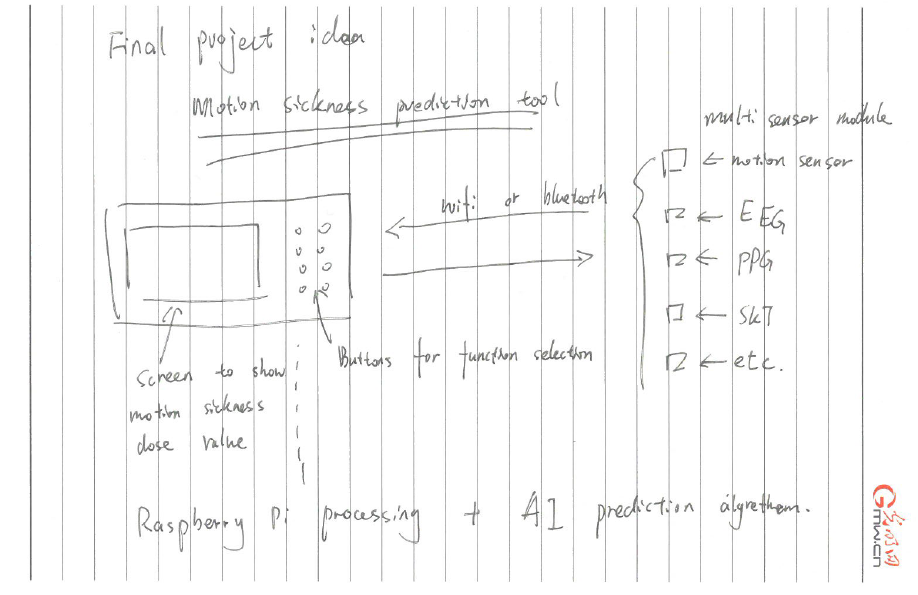 Final project idea
Motion sickness prediction tool
multi sensor module
← motion sensor
wifi or bluetooth
← EEG
← PPG
← SKT
← etc.
Buttons for function selection
screen to show
motion sickness
dose value
Raspberry Pi processing + AI prediction algrethem.
G光明网
mw.cn